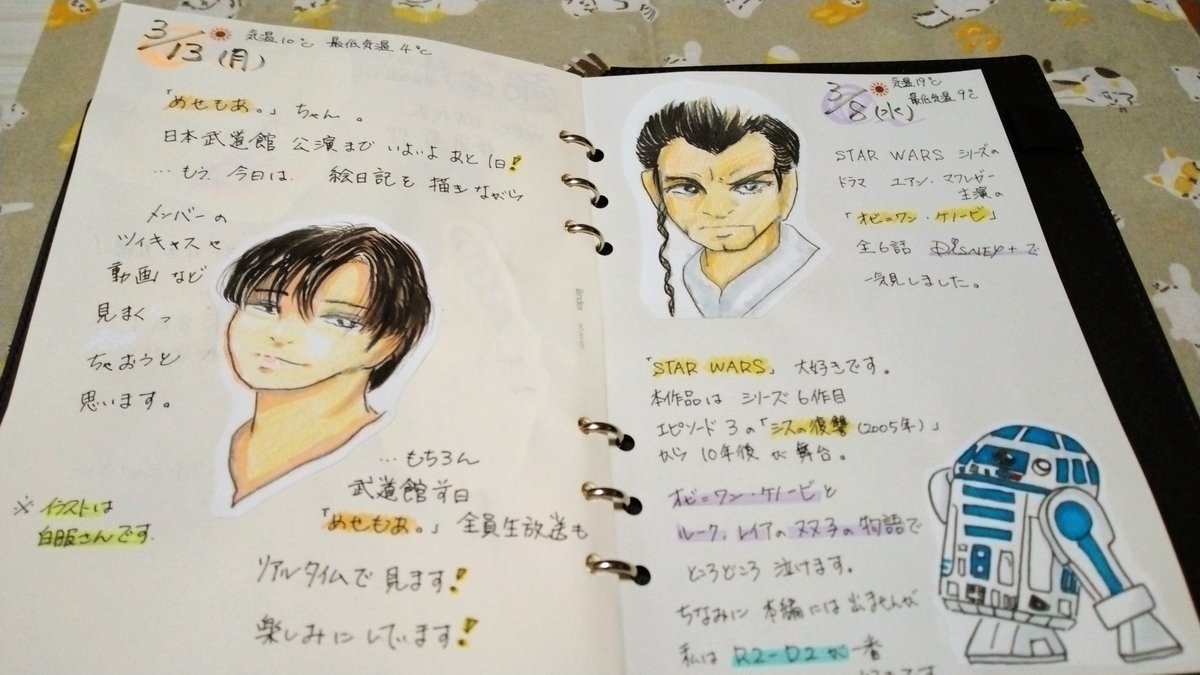 3/13(月)
気温10℃ 最低気温4℃
「めせもあ。」ちゃん。
日本武道館 公演まで いよいよ あと1日!
…もう 今日は、 絵日記を 描きながら
メンバーの
ツイキャスや
動画など
見まくっ
ちゃおうと
思います。
…もちろん
武道館前日
「めせもあ。」全員生放送も
リアルタイムで見ます!
楽しみにしています!
※イラストは
白服さんです
3/8(水)
気温19℃
最低気温9℃
STAR WARS シリーズの
ドラマ ユアン・マクレガー
主演の
「オビ=ワン・ケノービ」
全6話 DISNEY+で
一気見しました。
「STAR WARS」大好きです。
本作品は シリーズ6作目
エピソード3の「シスの復讐(2005年)」
から10年後が舞台。
オビ=ワン・ケノービと
ルーク、レイアの双子の物語で
ところどころ 泣けます。
ちなみに 本編には出ませんが
私は R2-D2が一番